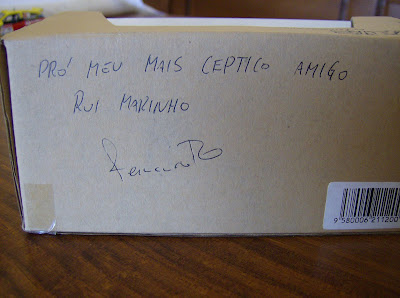 PRÓ MEU MAIS CEPTICO AMIGO
RUI MARINHO
9 580006 211200